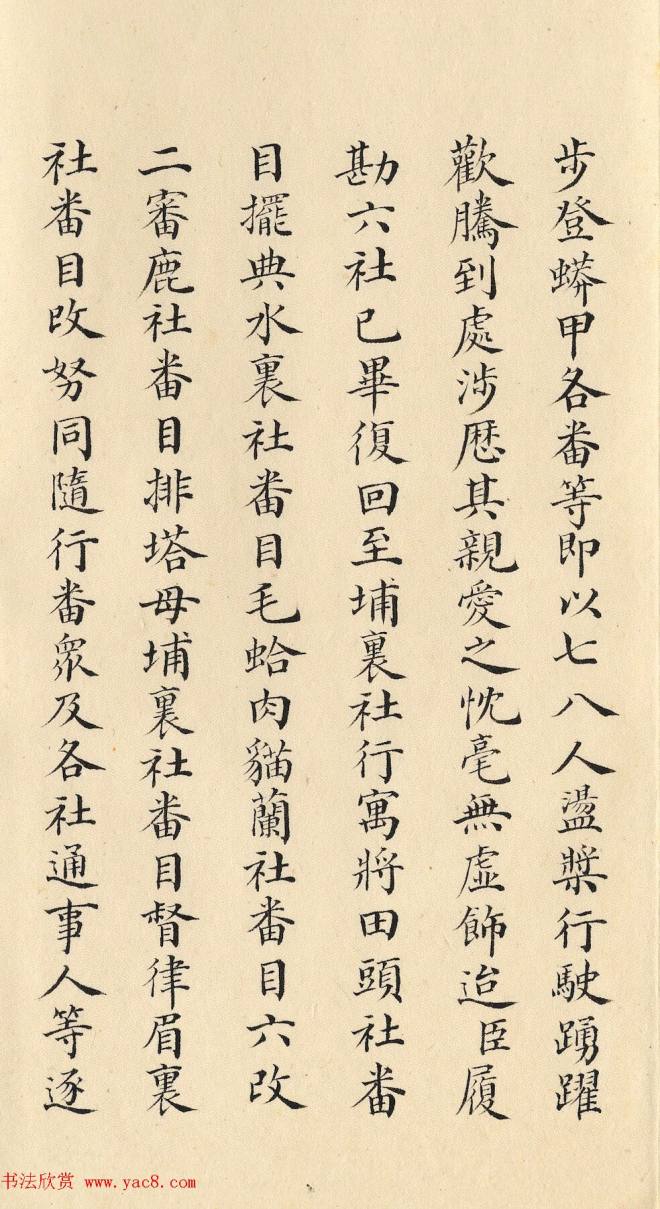 步登蟒甲各番等即以七八人盪槳行駛踴躍
歡騰到處涉歷其親愛之忱毫無虛飾迨臣履
勘六社已畢復回至埔裏社行寓將田頭社番
目擺典水裏社番目毛蛤肉貓蘭社番目六改
二審鹿社番目排塔母埔裏社番目督律眉裏
社番目改努同隨行番眾及各社通事人等逐
书法欣赏 www.yac8.com